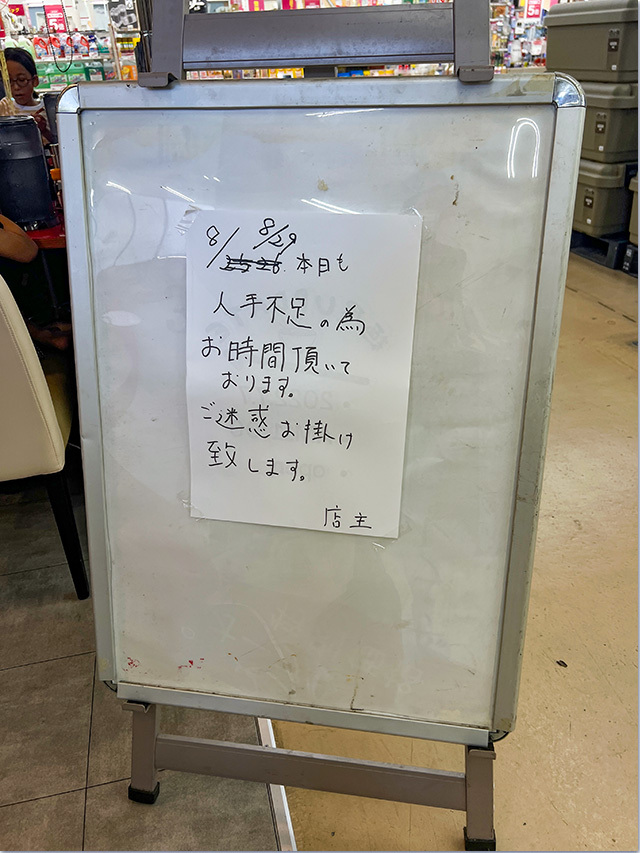 8/29
8/25 26 本日も
人手不足の為
お時間頂いて
おります。
ご迷惑お掛け
致します。
店主